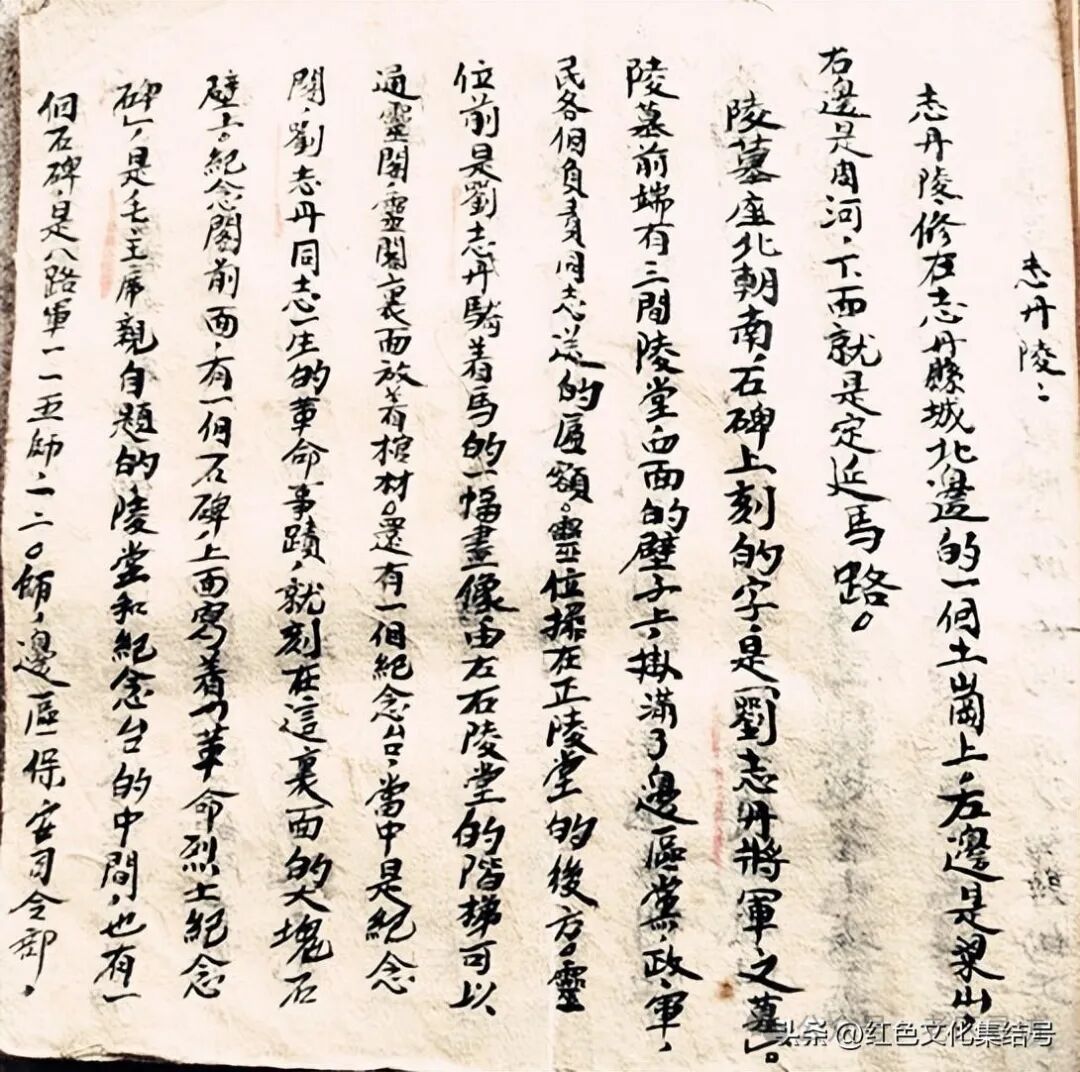 志丹陵：
志丹陵修在志丹縣城北邊的一個土崗上，左邊是梁山，
右邊是周河，下面就是定延馬路。
陵墓座北朝南，石碑上刻的字，是「劉志丹將軍之墓」。
陵墓前端有三間陵堂，四面的壁子上，掛滿了邊區黨，政，軍，
民各個負責同志送的匾額。靈位擺在正陵堂的後方。靈
位前是劉志丹騎着馬的一幅畫像，由左右陵堂的階梯可以
通靈閣，靈閣裏面放着棺材。還有一個紀念台，當中是紀念
閣，劉志丹同志一生的革命事蹟，就刻在這裏面的大塊石
壁上。紀念閣前面，有一個石碑，上面寫着「革命烈士紀念
碑」，是毛主席親自題的，陵堂和紀念台的中間，也有一
個石碑，是八路軍一一五師，一二〇師，邊區保安司令部，
头条 @红色文化集结号